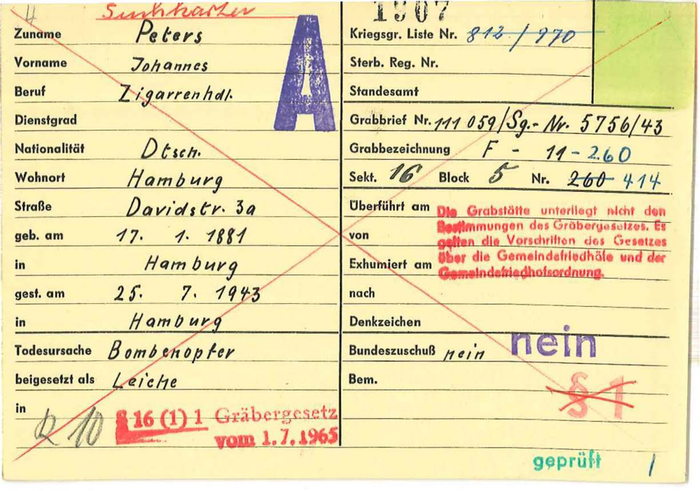 Suchkartei
1907
A
Zuname Peters
Vorname Johannes
Beruf Zigarrenhdl.
Dienstgrad
Nationalität Dtsch.
Wohnort Hamburg
Straße Davidstr. 3a
geb. am 17. 1. 1881
in Hamburg
gest. am 25. 7. 1943
in Hamburg
Todesursache Bombenopfer
beigesetzt als Leiche
in
§ 16 (1) 1 Gräbergesetz
vom 1.7.1965
Kriegsgr. Liste Nr. 812 / 970
Sterb. Reg. Nr.
Standesamt
Grabbrief Nr. 111 059/Sg.- Nr. 5756/43
Grabbezeichnung F - 11 - 260
Sekt. 16 Block 5 Nr. 260 414
Überführt am
von
Exhumiert am
nach
Die Grabstätte unterliegt nicht den
Bestimmungen des Gräbergesetzes. Es
gelten die Vorschriften des Gesetzes
über die Gemeindefriedhöfe und der
Gemeindefriedhofsordnung.
Denkzeichen
Bundeszuschuß nein nein
Bem.
§ 1
geprüft